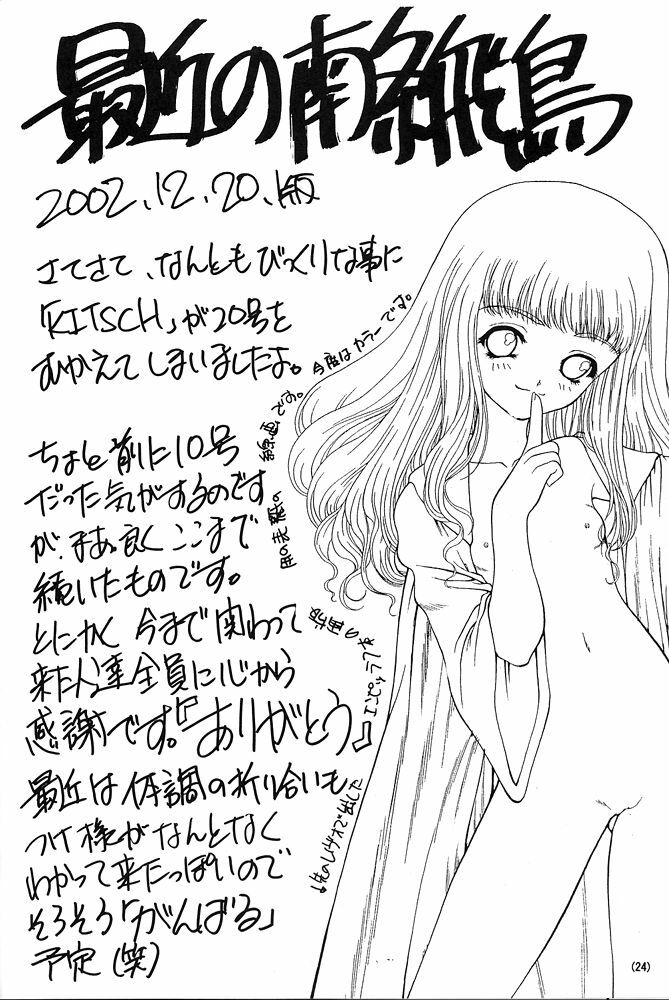 最近の南条飛鳥
2002、12、20、版
さてさて、なんともびっくりな事に
「KITSCH」が20号を
むかえてしまいましたよ。
ちょと前に10号
だった気がするのです
が、まあ。良くここまで
続いたものです。
とにかく今まで関わって
来た人達全員に心から
感謝です。『ありがとう』
最近は体調の折り合いも
つけ様がなんとなく
わかって来たっぽいので
そろそろ「がんばる」
予定(笑)
エンピツラフを
の線画です。
今度はカラーです。
(24)